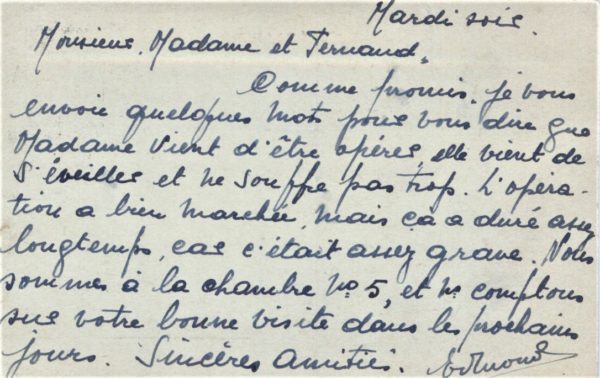 Mardi soir.
Monsieur, Madame et Fernand,
Comme promis, je vous
envoie quelques mots pour vous dire que
Madame vient d'être opérée, elle vient de
s'éveiller et ne souffre pas trop. L'opéra-
tion a bien marchée, mais ça a duré assez
longtemps, car c'était assez grave. Nous
sommes à la chambre No 5, et ns comptons
sur votre bonne visite dans les prochains
jours. Sincères amitiés. Edmond